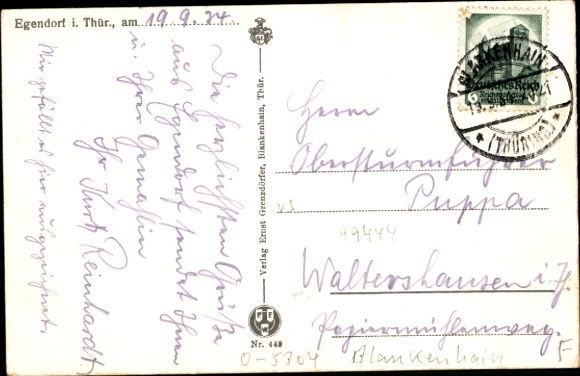 Egendorf i. Thür., am 19. 9. 34.
Die herzlichsten Grüße
aus Egendorf sendet Ihnen
u. Ihrer Gemahlin
Ihr Kurt Reinhardt.
Mir gefällt es hier ausgezeichnet.
Verlag Ernst Grenzdörfer, Blankenhain, Thür.
Nr. 449
BLANKENHAIN
(THÜRING)
Deutsches Reich
Herrn
Obersturmführer
Puppa
99444
Waltershausen i. Th.
Papiermühlenweg.
0-5304 Blankenhain